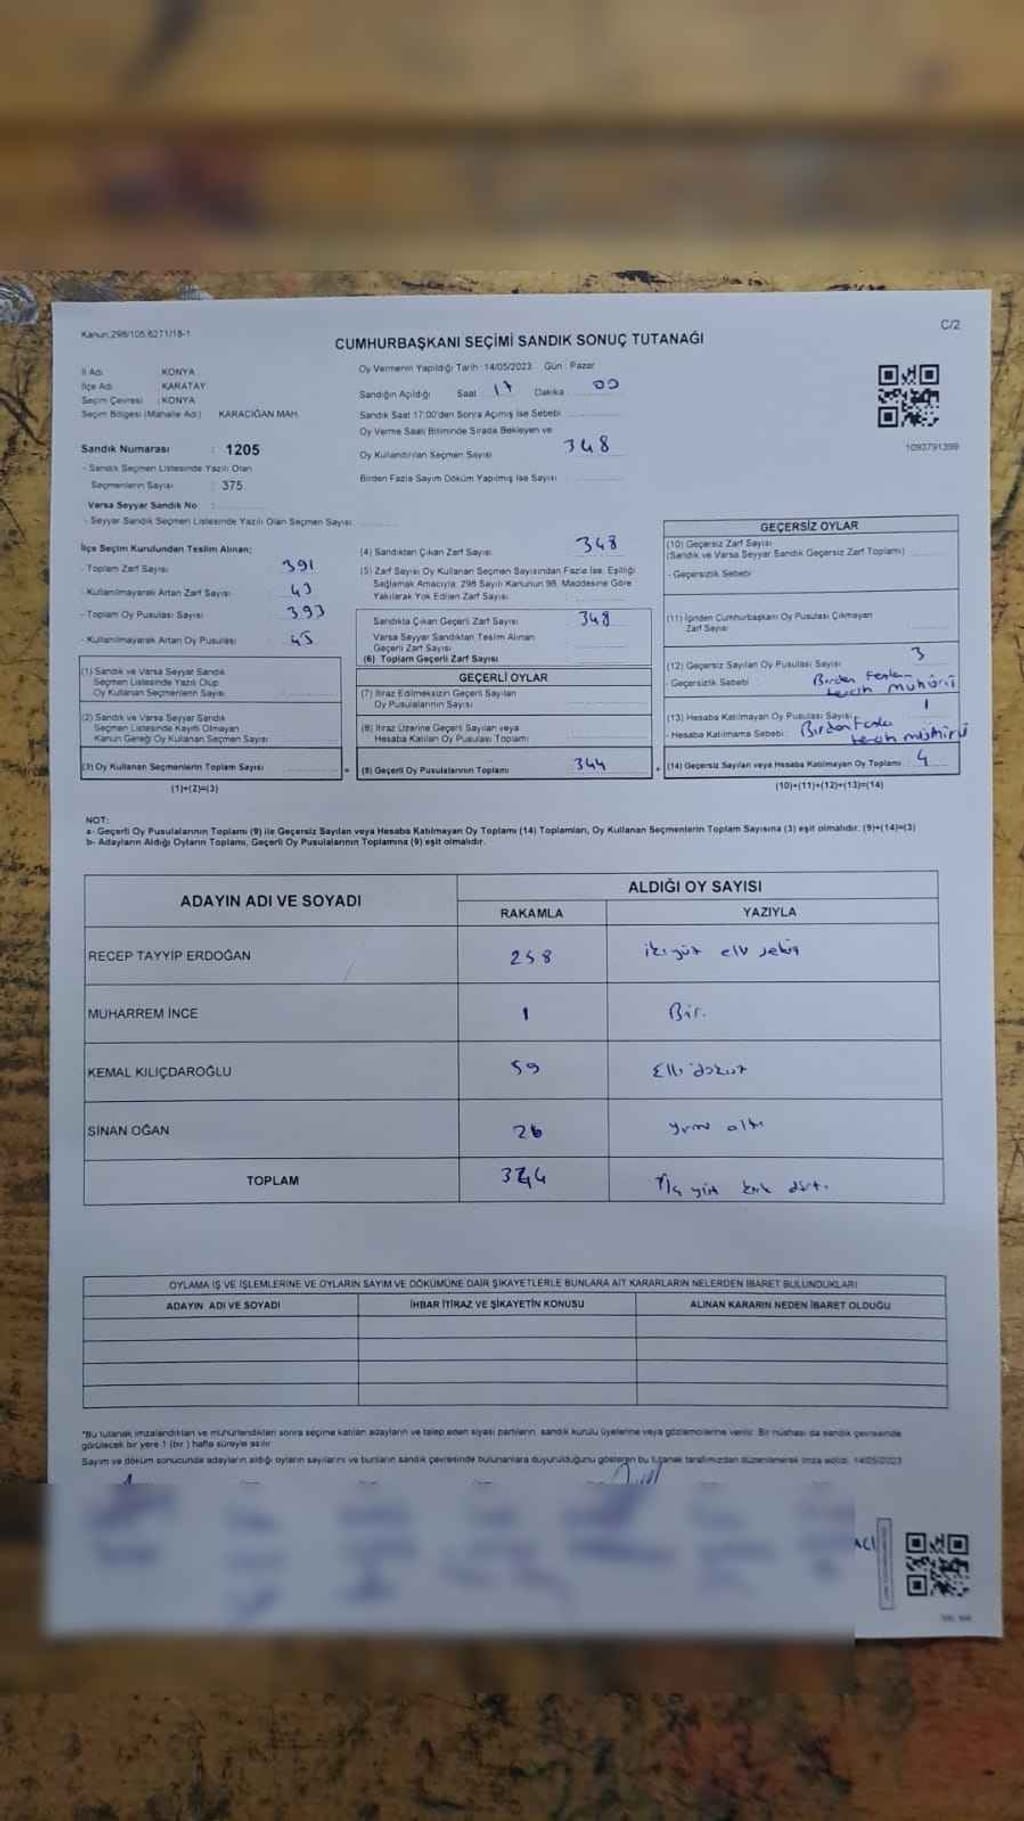 Kanun:298/105,6271/18-1
C/2
CUMHURBAŞKANI SEÇİMİ SANDIK SONUÇ TUTANAĞI
İl Adı : KONYA
İlçe Adı : KARATAY
Seçim Çevresi : KONYA
Seçim Bölgesi (Mahalle Adı) : KARACİĞAN MAH.
Sandık Numarası : 1205
- Sandık Seçmen Listesinde Yazılı Olan
Seçmenlerin Sayısı : 375
Varsa Seyyar Sandık No :
- Seyyar Sandık Seçmen Listesinde Yazılı Olan Seçmen Sayısı
Oy Vermenin Yapıldığı Tarih :14/05/2023 Gün : Pazar
Sandığın Açıldığı Saat 17 Dakika 00
Sandık Saat 17:00'den Sonra Açılmış İse Sebebi
Oy Verme Saati Bitiminde Sırada Bekleyen ve
Oy Kullandırılan Seçmen Sayısı 348
Birden Fazla Sayım Döküm Yapılmış İse Sayısı
1093791399
İlçe Seçim Kurulundan Teslim Alınan;
- Toplam Zarf Sayısı 391
- Kullanılmayarak Artan Zarf Sayısı 43
- Toplam Oy Pusulası Sayısı 393
- Kullanılmayarak Artan Oy Pusulası 45
(1) Sandık ve Varsa Seyyar Sandık
Seçmen Listesinde Yazılı Olup
Oy Kullanan Seçmenlerin Sayısı
(2) Sandık ve Varsa Seyyar Sandık
Seçmen Listesinde Kayıtlı Olmayan
Kanun Gereği Oy Kullanan Seçmen Sayısı
(3) Oy Kullanan Seçmenlerin Toplam Sayısı
(1)+(2)=(3)
(4) Sandıktan Çıkan Zarf Sayısı 348
(5) Zarf Sayısı Oy Kullanan Seçmen Sayısından Fazla İse, Eşitliği
Sağlamak Amacıyla, 298 Sayılı Kanunun 98. Maddesine Göre
Yakılarak Yok Edilen Zarf Sayısı
Sandıkta Çıkan Geçerli Zarf Sayısı 348
Varsa Seyyar Sandıktan Teslim Alınan
Geçerli Zarf Sayısı
(6) Toplam Geçerli Zarf Sayısı
GEÇERLİ OYLAR
(7) İtiraz Edilmeksizin Geçerli Sayılan
Oy Pusulalarının Sayısı
(8) İtiraz Üzerine Geçerli Sayılan veya
Hesaba Katılan Oy Pusulası Toplamı
(9) Geçerli Oy Pusulalarının Toplamı 344
GEÇERSİZ OYLAR
(10) Geçersiz Zarf Sayısı
(Sandık ve Varsa Seyyar Sandık Geçersiz Zarf Toplamı)
- Geçersizlik Sebebi
(11) İçinden Cumhurbaşkanı Oy Pusulası Çıkmayan
Zarf Sayısı
(12) Geçersiz Sayılan Oy Pusulası Sayısı 3
- Geçersizlik Sebebi Birden Fazla
tercih mühürü
(13) Hesaba Katılmayan Oy Pusulası Sayısı 1
- Hesaba Katılmama Sebebi Birden Fazla
tercih mühürü
(14) Geçersiz Sayılan veya Hesaba Katılmayan Oy Toplamı 4
(10)+(11)+(12)+(13)=(14)
NOT:
a- Geçerli Oy Pusulalarının Toplamı (9) ile Geçersiz Sayılan veya Hesaba Katılmayan Oy Toplamı (14) Toplamları, Oy Kullanan Seçmenlerin Toplam Sayısına (3) eşit olmalıdır. (9)+(14)=(3)
b- Adayların Aldığı Oyların Toplamı, Geçerli Oy Pusulalarının Toplamına (9) eşit olmalıdır.
ADAYIN ADI VE SOYADI
ALDIĞI OY SAYISI
RAKAMLA YAZIYLA
RECEP TAYYİP ERDOĞAN 258 ikiyüz elli sekiz
MUHARREM İNCE 1 Bir.
KEMAL KILIÇDAROĞLU 59 Elli dokuz
SİNAN OĞAN 26 yirmi altı
TOPLAM 344 Üç yüz kırk dört.
OYLAMA İŞ VE İŞLEMLERİNE VE OYLARIN SAYIM VE DÖKÜMÜNE DAİR ŞİKAYETLERLE BUNLARA AİT KARARLARIN NELERDEN İBARET BULUNDUKLARI
ADAYIN ADI VE SOYADI İHBAR İTİRAZ VE ŞİKAYETİN KONUSU ALINAN KARARIN NEDEN İBARET OLDUĞU
*Bu tutanak imzalandıktan ve mühürlendikten sonra seçime katılan adayların ve talep eden siyasi partilerin, sandık kurulu üyelerine veya gözlemcilerine verilir. Bir nüshası da sandık çevresinde
görülecek bir yere 1 (bir ) hafta süreyle asılır
Sayım ve döküm sonucunda adayların aldığı oyların sayılarını ve bunların sandık çevresinde bulunanlara duyurulduğunu gösteren bu tutanak tarafımızdan düzenlenerek imza edildi. 14/05/2023